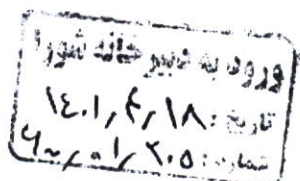 ورود به دبیرخانه شورا
تاریخ: ۱۴۰۱/۴/۱۸
شماره: